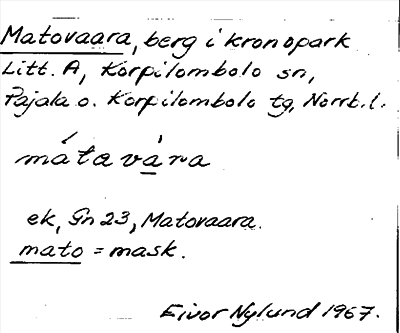 Matovaara, berg i kronopark
Litt. A, Korpilombolo sn,
Pajala o. Korpilombolo tg, Norrb. l.
mátavára
ek, Gn 23, Matovaara.
mato = mask.
Eivor Nylund 1967.